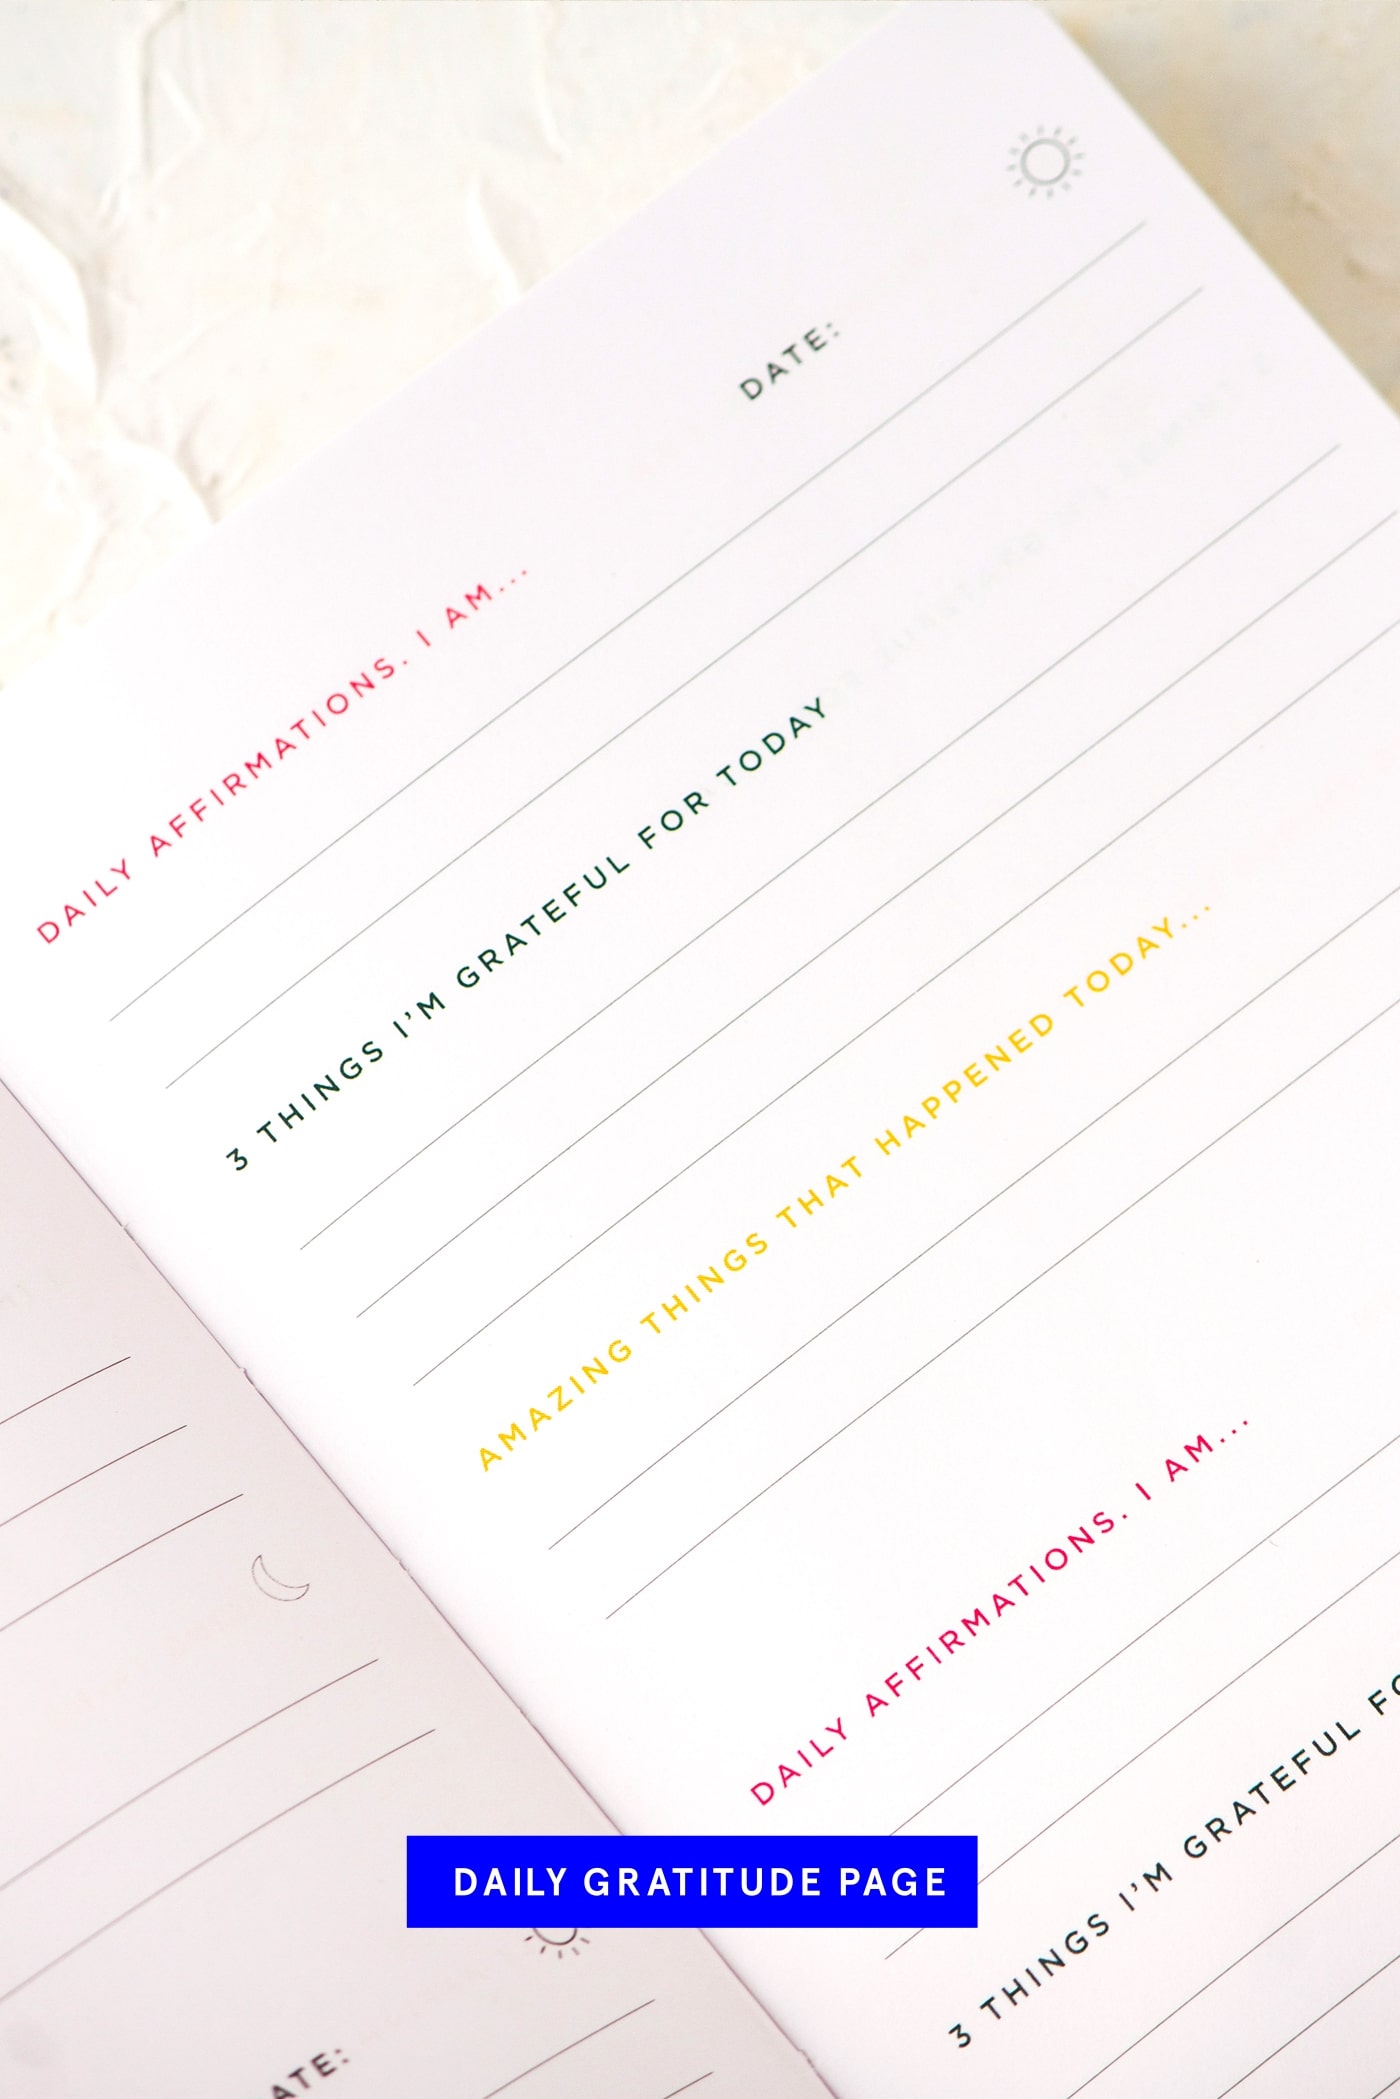 DATE:
DAILY AFFIRMATIONS. I AM...
3 THINGS I'M GRATEFUL FOR TODAY
AMAZING THINGS THAT HAPPENED TODAY...
DAILY AFFIRMATIONS. I AM...
3 THINGS I'M GRATEFUL
DAILY GRATITUDE PAGE